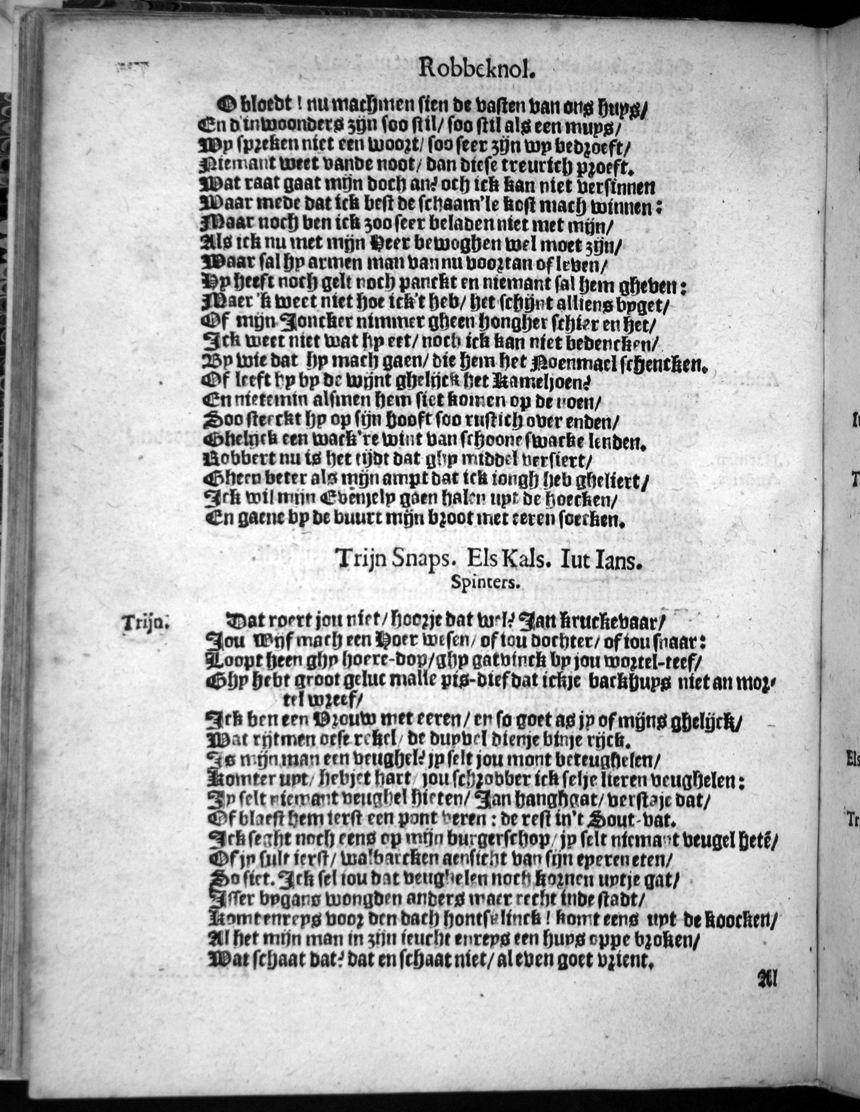 Robbeknol.
O bloedt ! nu machmen sien de vasten van ons huys/
En d'inwoonders zijn soo stil/ soo stil als een muys/
Wy spreken niet een woort/ soo seer zijn wy bedroeft/
Niemant weet vande noot/ dan diese treurich proeft.
Wat raat gaat mijn doch an? och ick kan niet versinnen
Waar mede dat ick best de schaam'le kost mach winnen:
Maar noch ben ick zoo seer beladen niet met mijn/
Als ick nu met mijn Heer bewoghen wel moet zijn/
Waar sal hy armen man van nu voortan of leven/
Hy heeft noch gelt noch panckt en niemant sal hem gheven:
Maer 'k weet niet hoe ick't heb/ het schijnt alliens byget/
Of mijn Joncker nimmer gheen hongher schier en het/
Ick weet niet wat hy eet/ noch ick kan niet bedencken/
By wie dat hy mach gaen/ die hem het Noenmael schencken.
Of leeft hy by de wijnt ghelijck het Kameljoen?
En nietemin alsmen hem siet komen op de roen/
Soo steeckt hy op sijn hooft soo rustich over enden/
Ghelijck een wack're wint van schoone swacke lenden.
Robbert nu is het tijdt dat ghy middel versiert/
Gheen beter als mijn ampt dat ick iongh heb gheliert/
Ick wil mijn Evenjely gaen halen uyt de hoecken/
En gaene by de buurt mijn broot met eeren soecken.
Trijn Snaps. Els Kals. Iut Ians.
Spinters.
Trijn. Dat roert jou niet/ hoorje dat wel? Jan kruckevaar/
Jou Wijf mach een Hoer wesen/ of iou dochter/ of iou snaar:
Loopt heen ghy hoere-dop/ ghy gatvinck by jou wortel-teef/
Ghy hebt groot geluc malle pis-dief dat ickje backhuys niet an mor-
tel wreef/
Ick ben een Vrouw met eeren/ en so goet as jy of mijns ghelijck/
Wat rijtmen dese rekel/ de duyvel dienje binje rijck.
Is mijn man een veughel? jy selt jou mont beteughelen/
Komter uyt/ hebjet hart/ jou schrobber ick selje lieren veughelen:
Jy selt niemant veughel hieten/ Jan hanghgat/ verstaje dat/
Of blaest hem ierst een pont veren : de rest in't Sout-vat.
Ick seght noch eens op mijn burgerschop/ jy selt niemant veugel heté/
Of jy sult ierst/ walbarcken aensicht van sijn eyeren eten/
So siet. Ick sel iou dat veughelen noch kornen uytje gat/
Isser bygans wongden anders maer recht inde stadt/
Komtenreys voor den dach hontsklinck ! komt eens uyt de koocken/
Al het mijn man in zijn ieucht enreys een huys oppe broken/
Wat schaat dat? dat en schaat niet/ al even goet vrient.
Al